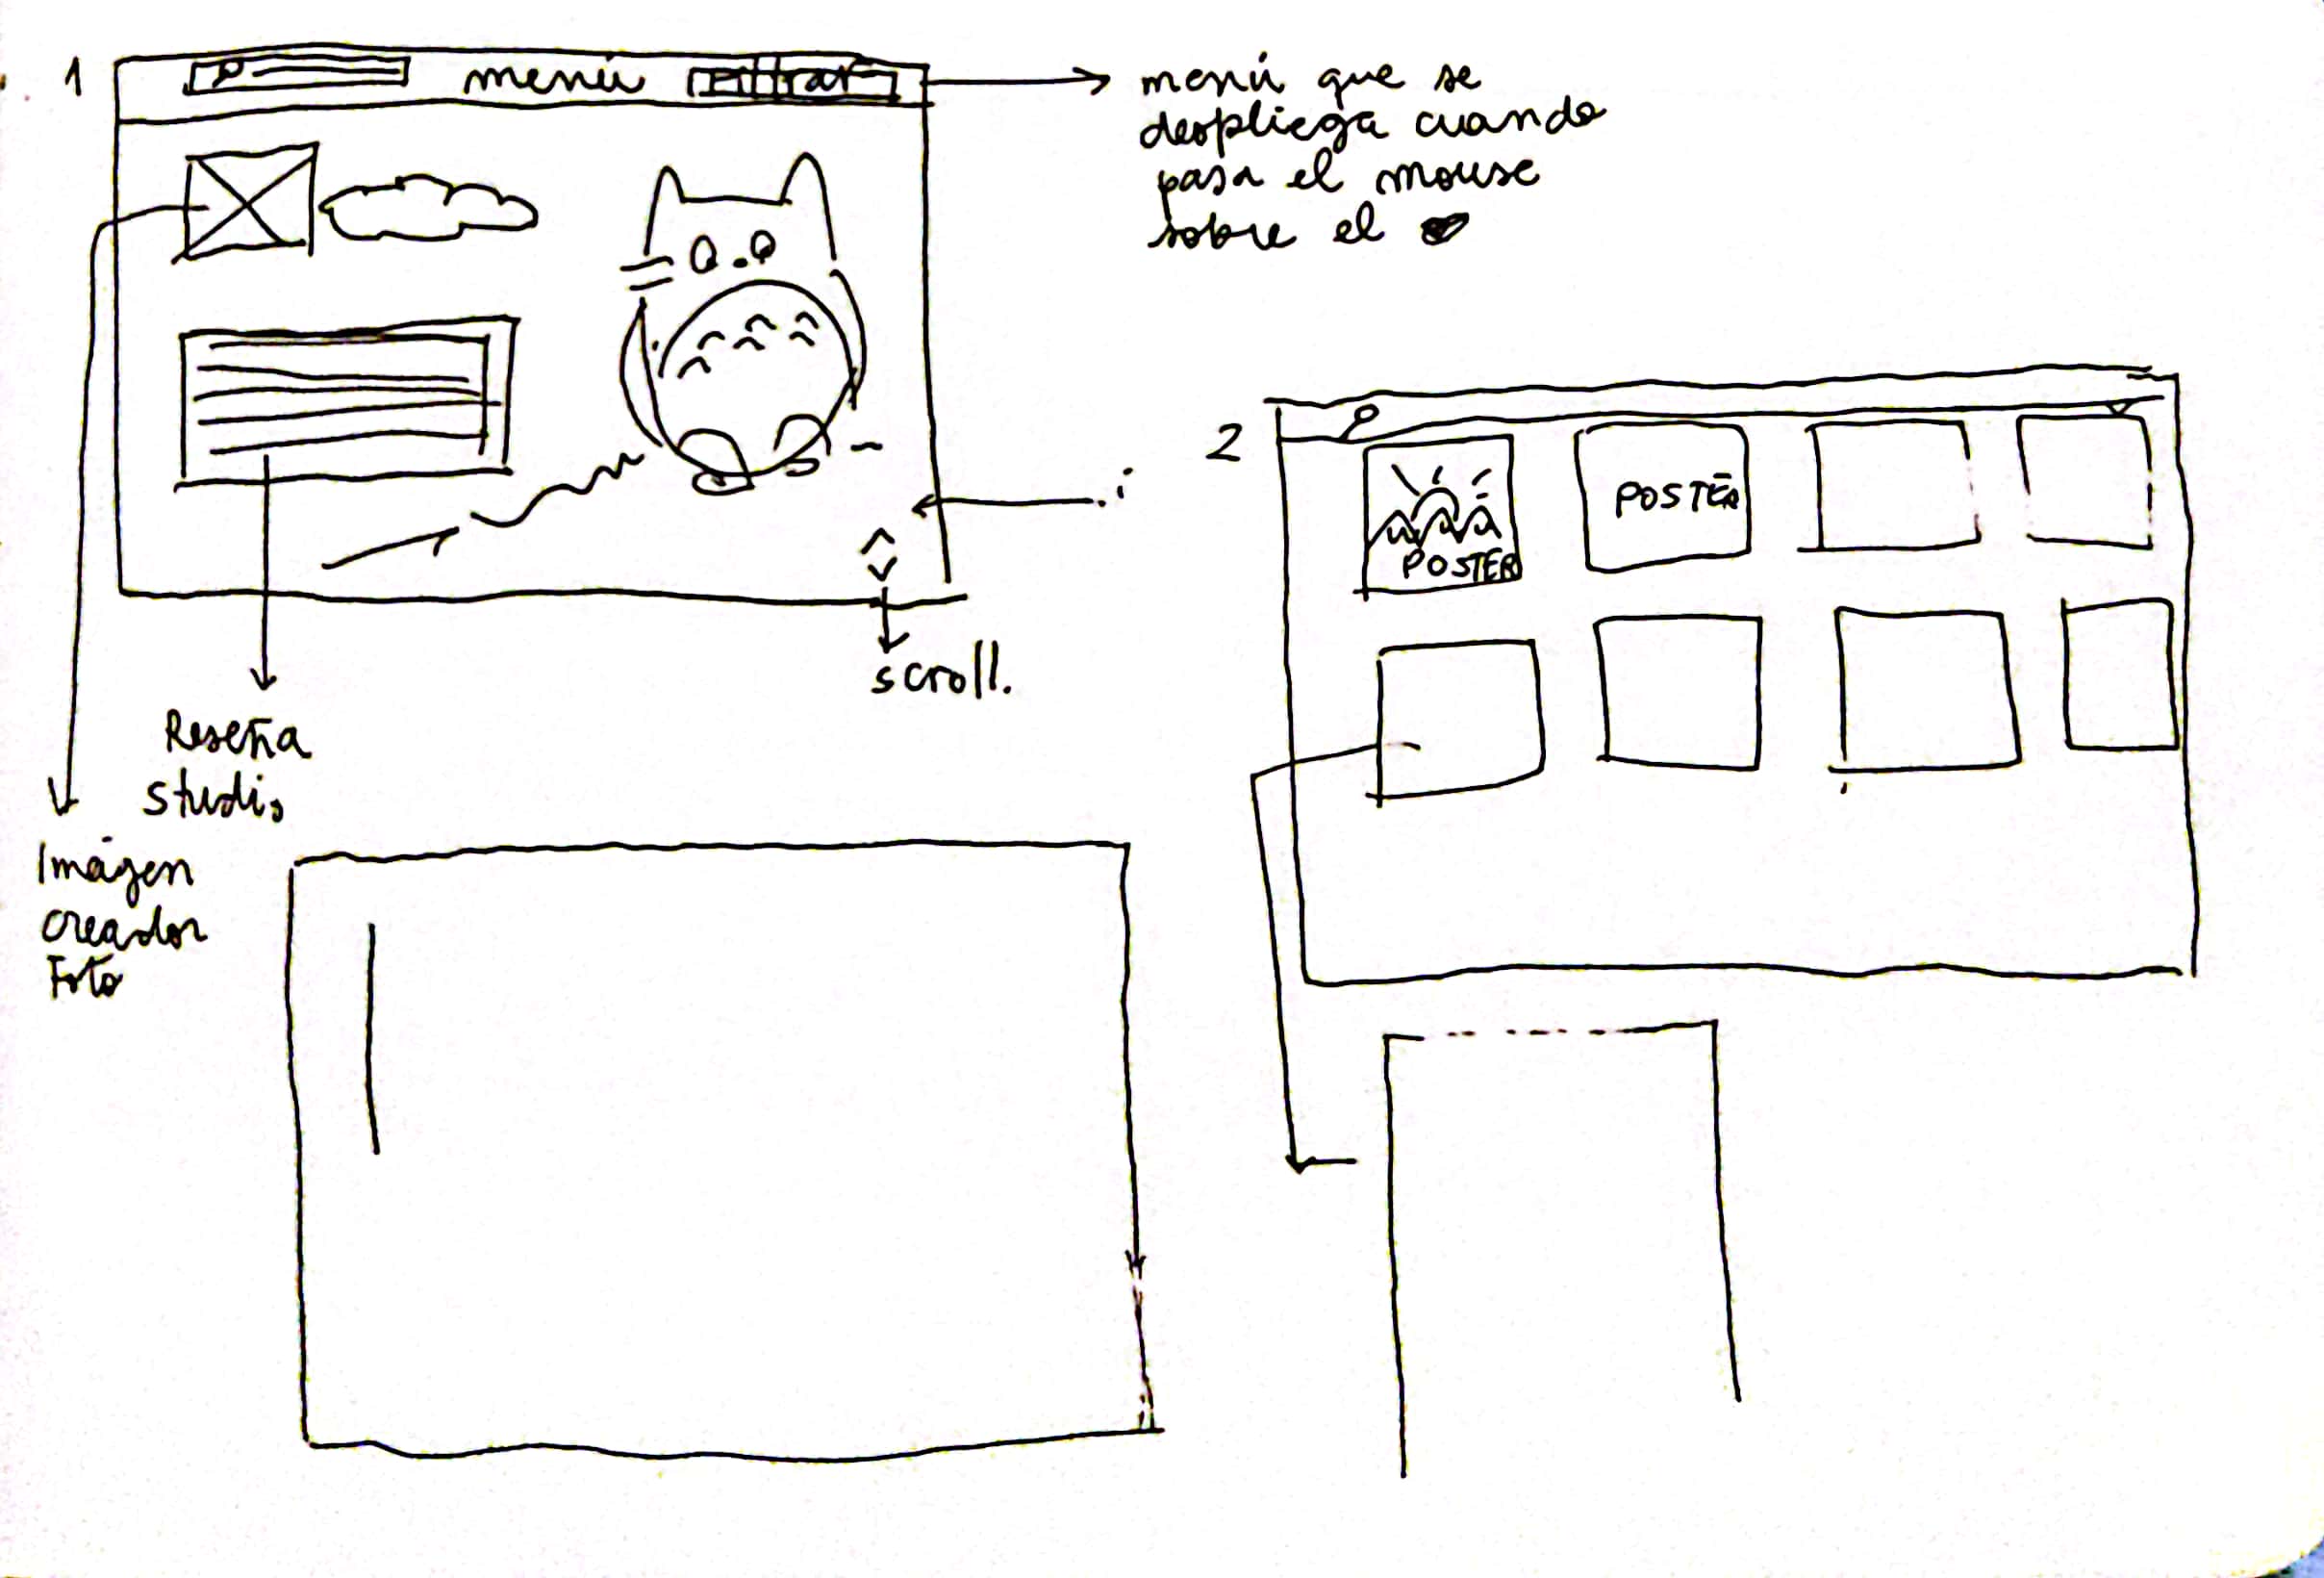 1
menú
menú que se
despliega cuando
pasa el mouse
sobre el
scroll.
Reseña
studio
Imágen
creador
Foto
2
POSTER
POSTER